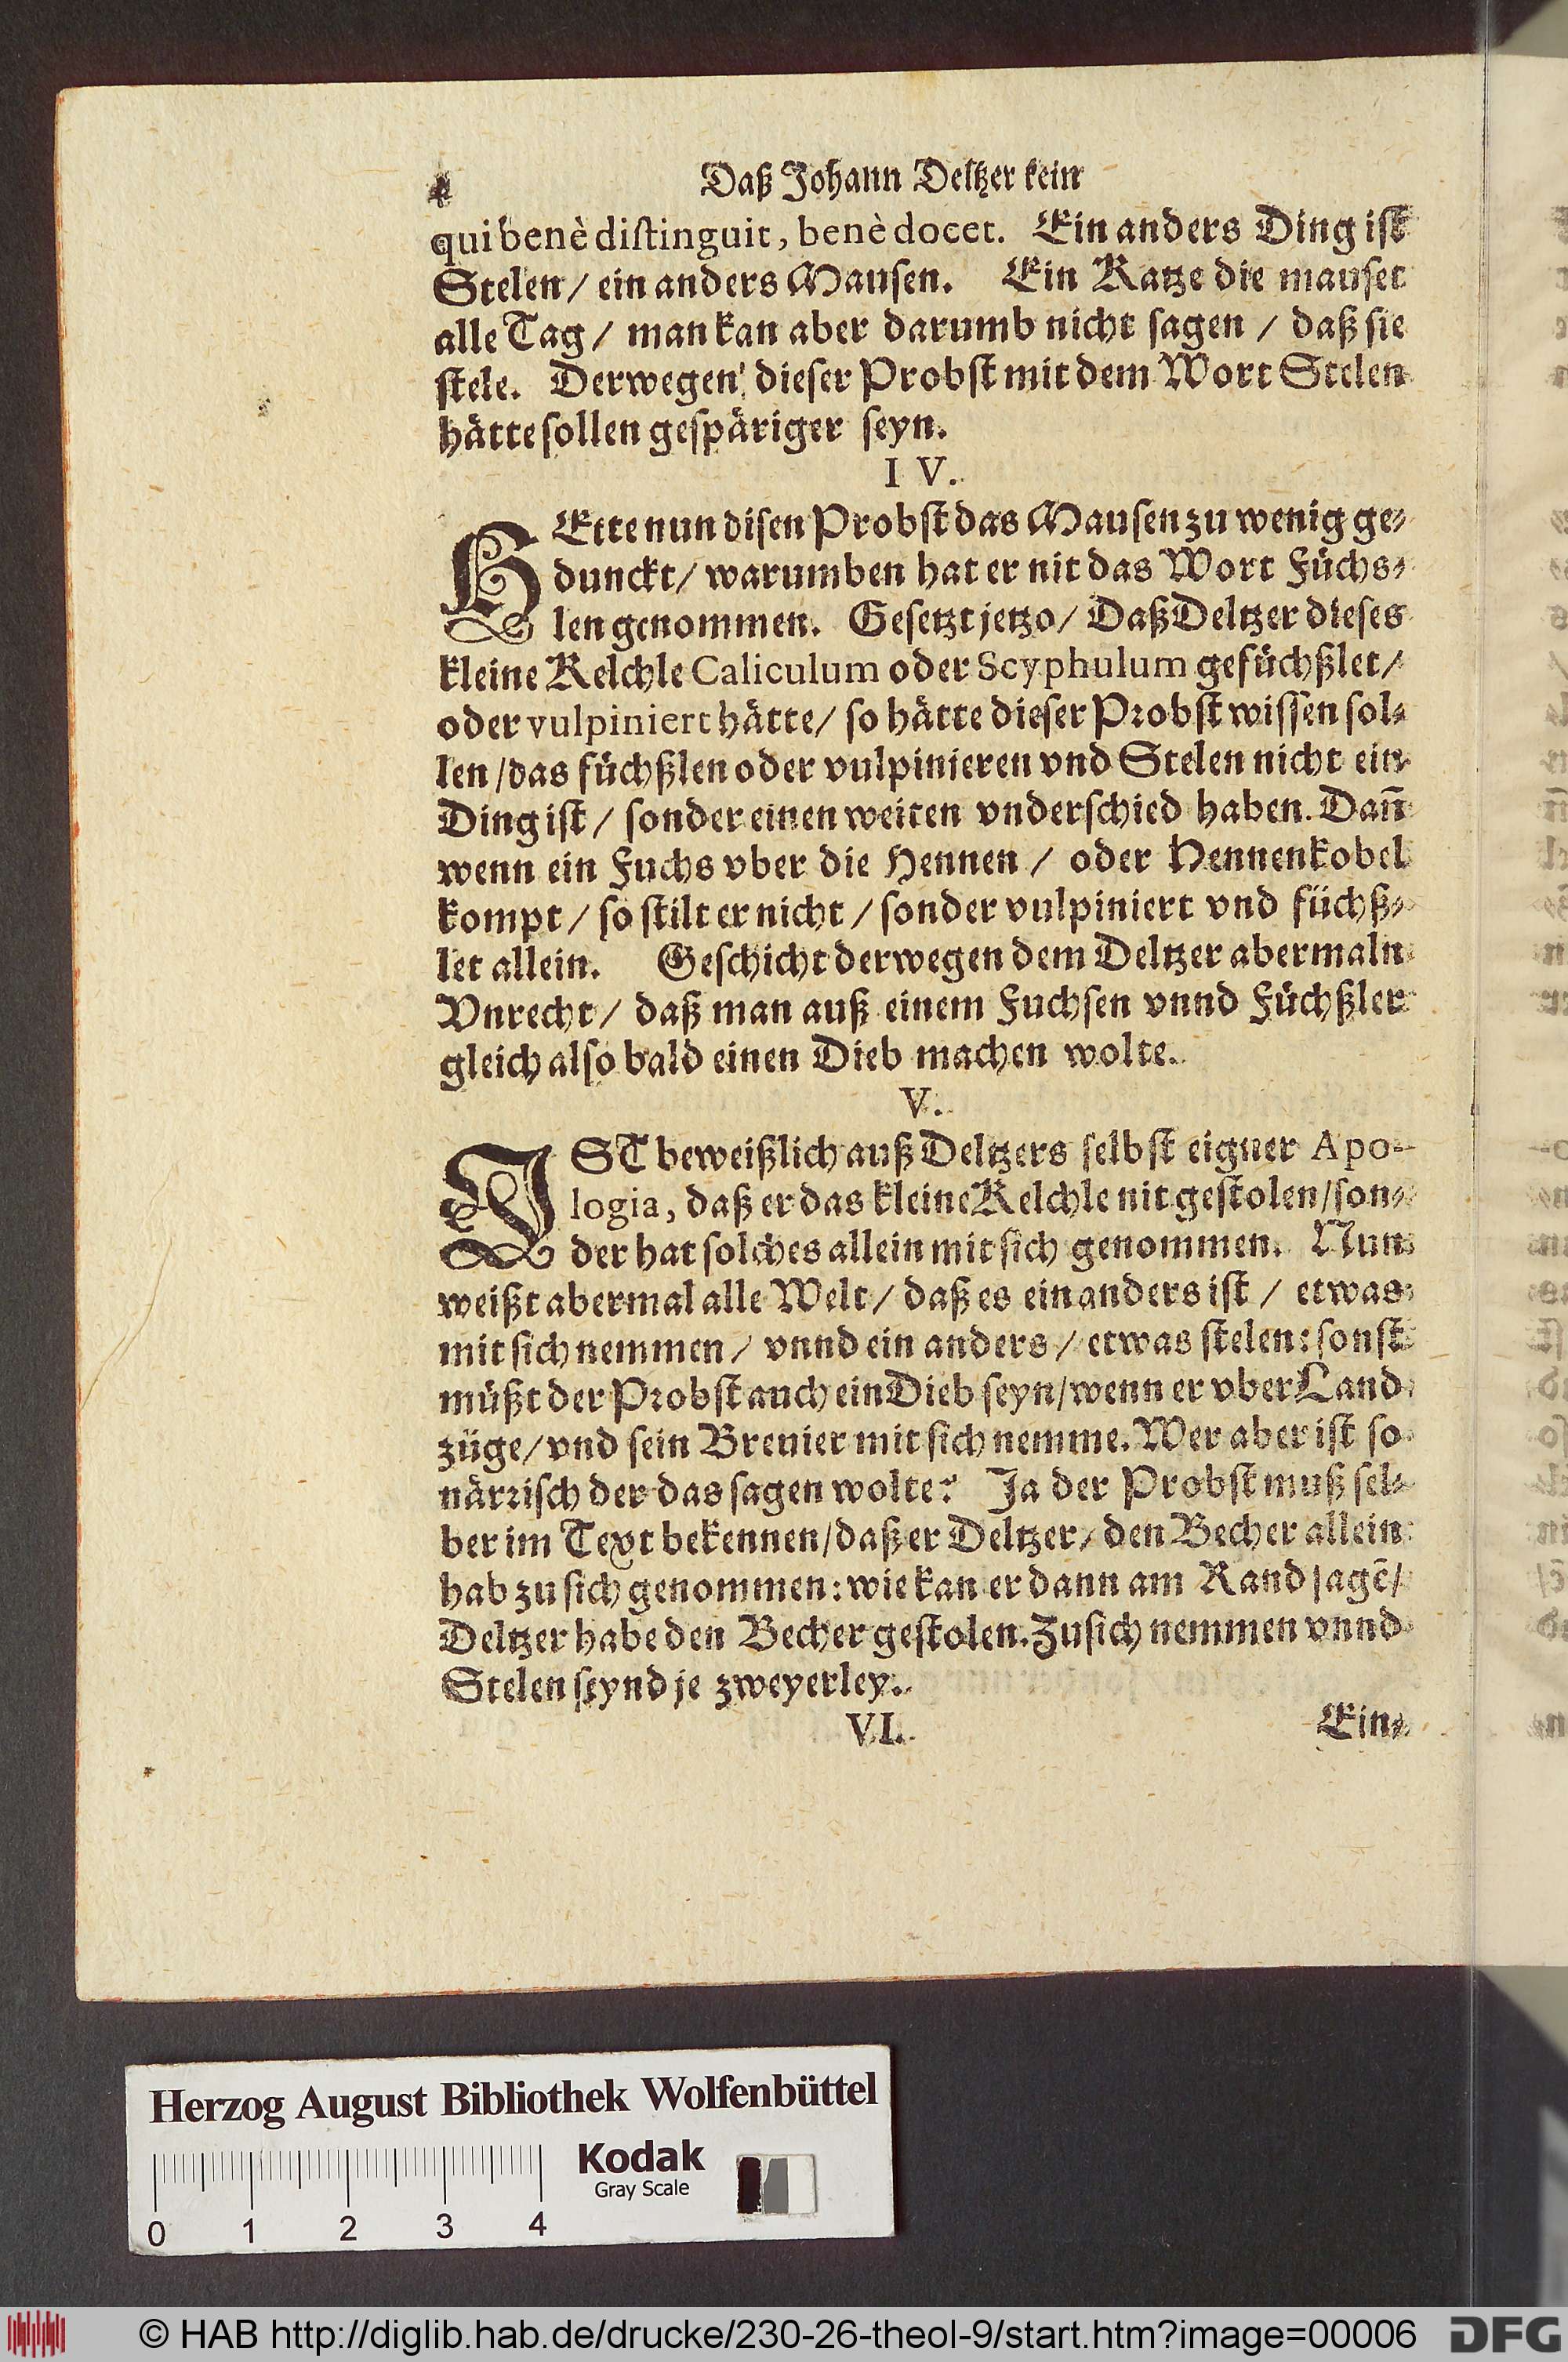 4 Daß Johann Deltzer kein
qui benè distinguit, benè docet. Ein anders Ding ist
Stelen / ein anders Mausen. Ein Katze die mauset
alle Tag / man kan aber darumb nicht sagen / daß sie
stele. Derwegen dieser Probst mit dem Wort Stelen
hätte sollen gespäriger seyn.
IV.
HEtte nun disen Probst das Mausen zu wenig ge-
dunckt / warumben hat er nit das Wort Füchs-
len genommen. Gesetzt jetzo / Daß Deltzer dieses
kleine Kelchle Caliculum oder Scyphulum gefüchßlet /
oder vulpiniert hätte / so hätte dieser Probst wissen sol-
len / das füchßlen oder vulpinieren vnd Stelen nicht ein
Ding ist / sonder einen weiten vnderschied haben. Dañ
wenn ein Fuchs vber die Hennen / oder Hennenkobel
kompt / so stilt er nicht / sonder vulpiniert vnd füchß-
let allein. Geschicht derwegen dem Deltzer abermaln
Vnrecht / daß man auß einem Fuchsen vnnd Füchßler
gleich also bald einen Dieb machen wolte.
V.
IST beweißlich auß Deltzers selbst eigner Apo-
logia, daß er das kleine Kelchle nit gestolen / son-
der hat solches allein mit sich genommen. Nun
weißt abermal alle Welt / daß es ein anders ist / etwas
mit sich nemmen / vnnd ein anders / etwas stelen: sonst
müßt der Probst auch ein Dieb seyn / wenn er vber Land
züge / vnd sein Breuier mit sich nemme. Wer aber ist so
närrisch der das sagen wolte? Ja der Probst muß sel-
ber im Text bekennen / daß er Deltzer / den Becher allein
hab zu sich genommen: wie kan er dann am Rand sagē /
Deltzer habe den Becher gestolen. Zu sich nemmen vnnd
Stelen seynd je zweyerley.
VI. Ein-
Herzog August Bibliothek Wolfenbüttel
Kodak
Gray Scale
0 1 2 3 4
© HAB http://diglib.hab.de/drucke/230-26-theol-9/start.htm?image=00006 DFG